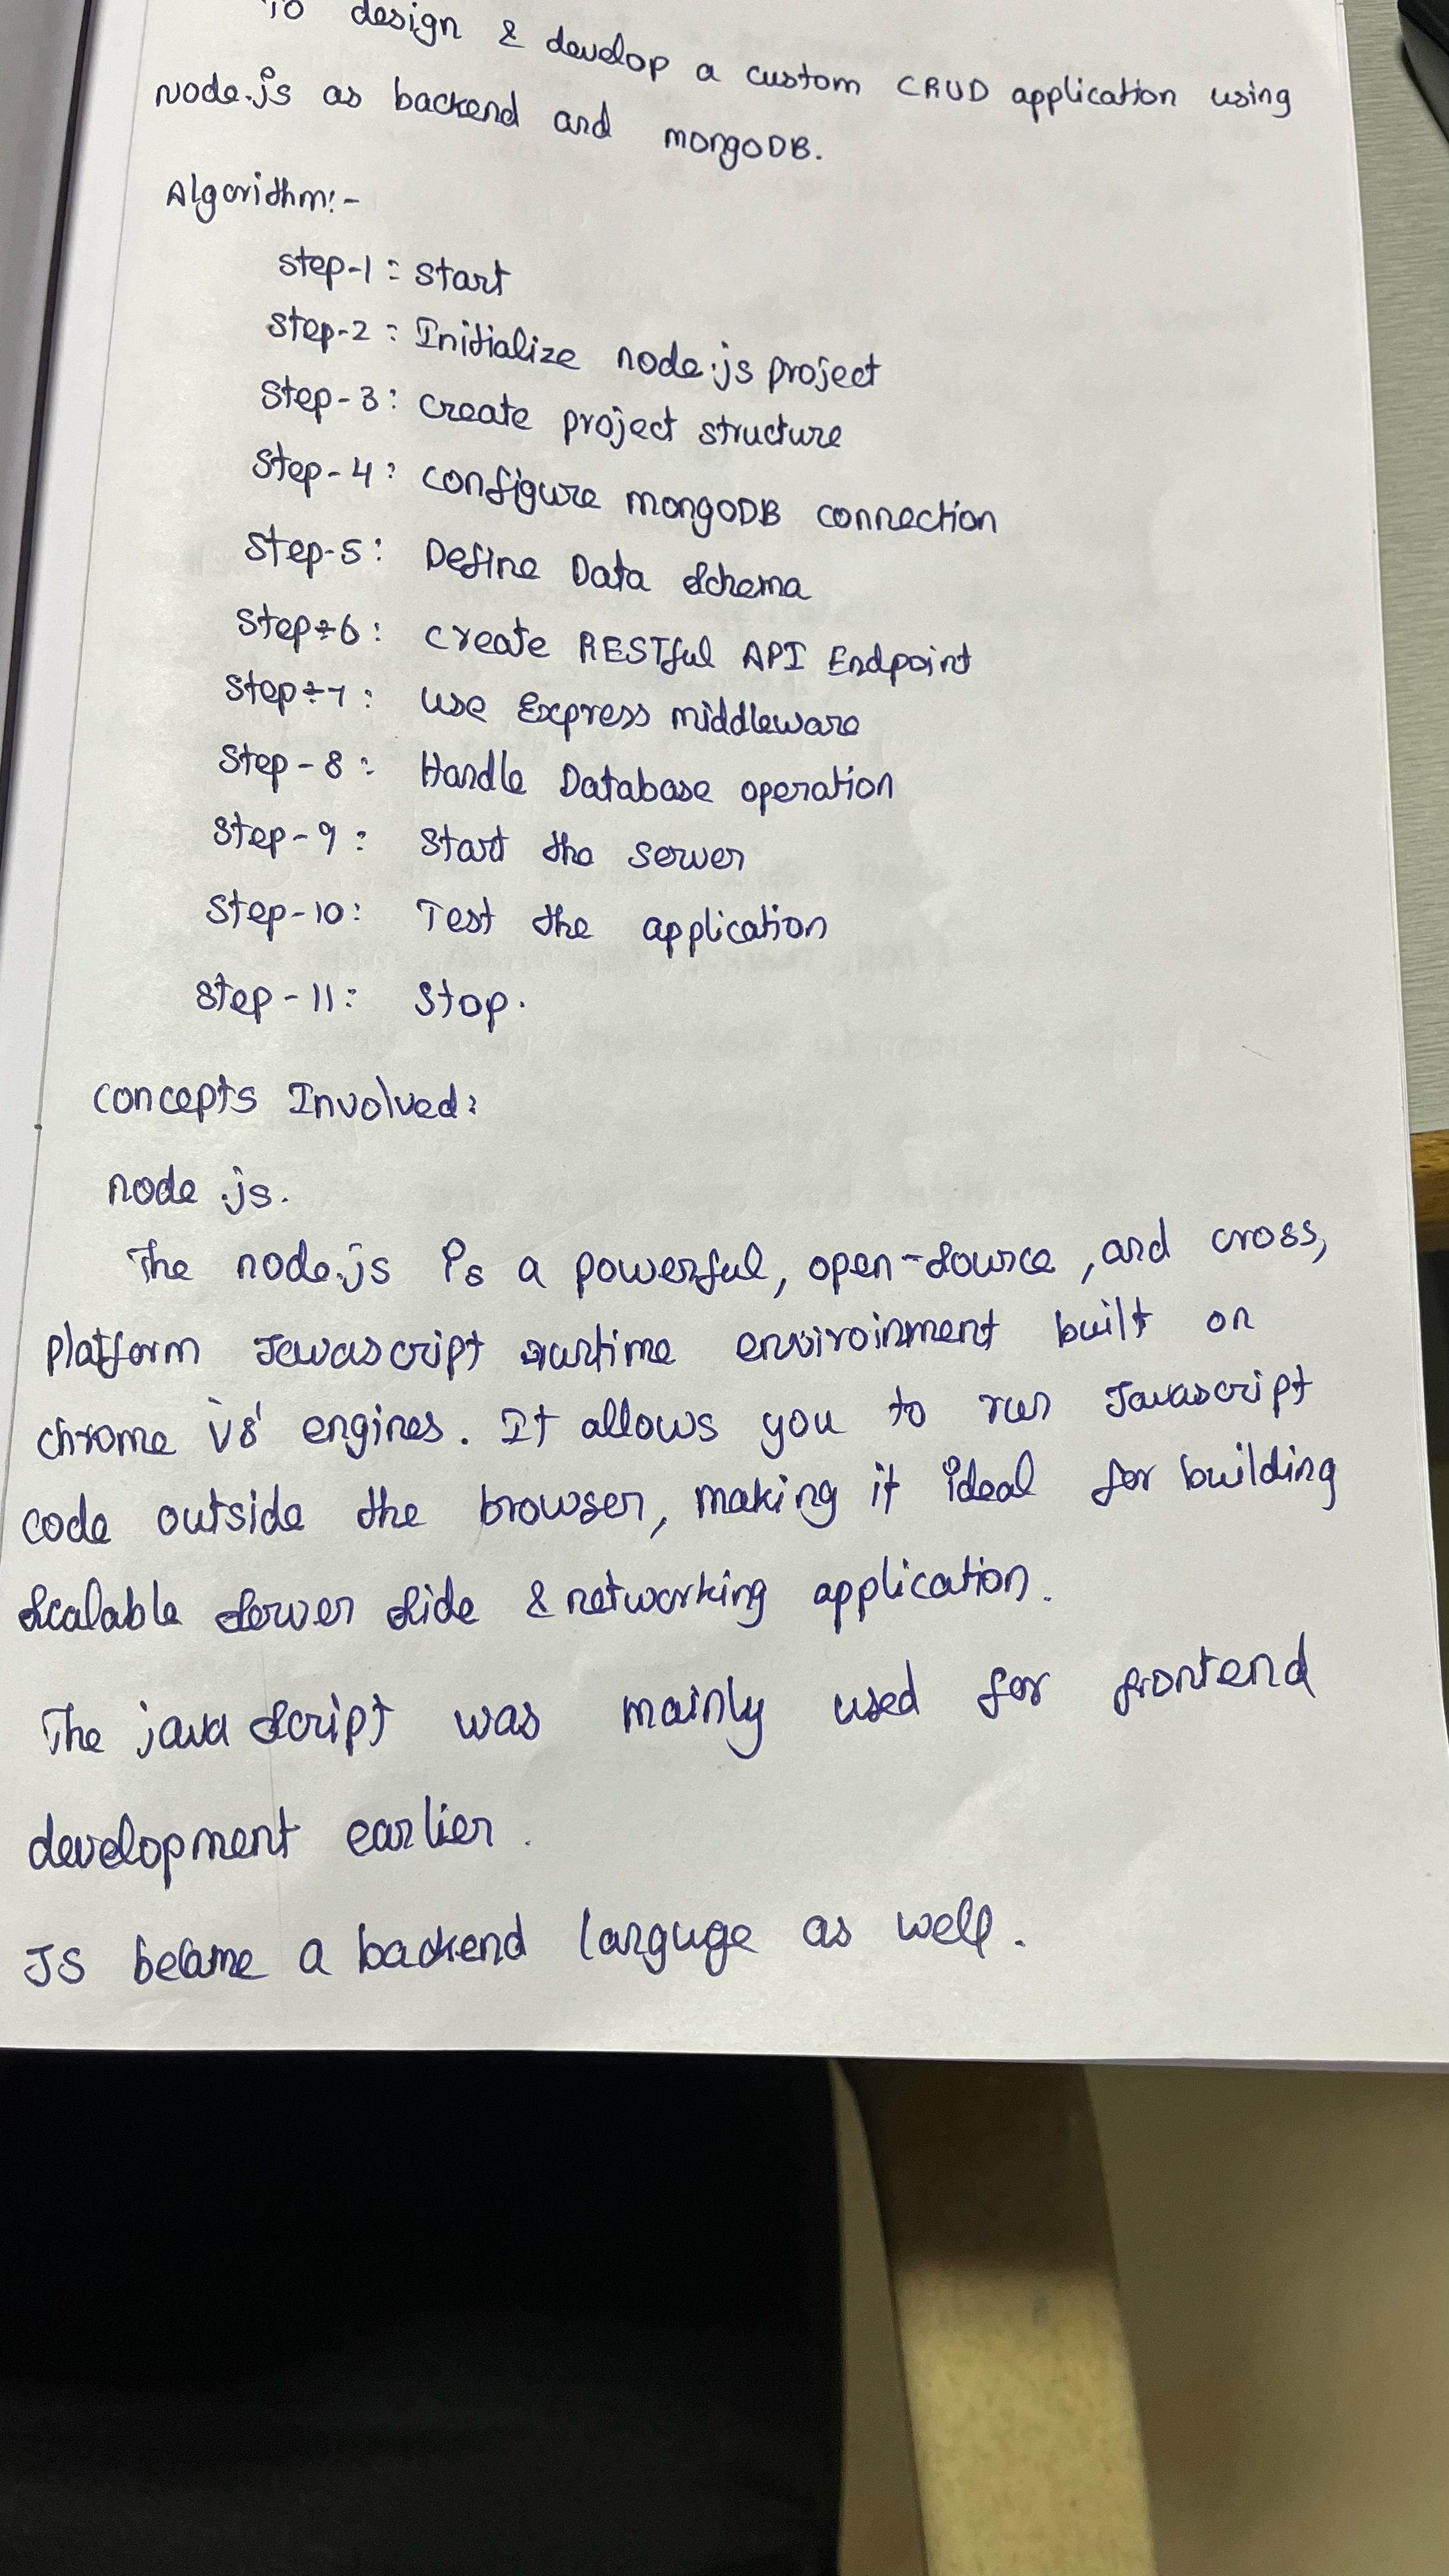 To design & develop a custom CRUD application using
Node.js as backend and mongoDB.
Algorithm:-
Step-1 : Start
Step-2 : Initialize node.js project
Step-3 : create project structure
Step-4 : configure mongoDB connection
Step-5 : Define Data Schema
Step-6 : create RESTful API Endpoint
Step-7 : use Express middleware
Step-8 : Handle Database operation
Step-9 : Start the server
Step-10 : Test the application
Step-11 : Stop.
concepts Involved :
node.js.
The node.js is a powerful, open-source, and cross,
platform Javascript runtime enviroinment built on
chrome 'V8' engines. It allows you to run Javascript
code outside the browser, making it ideal for building
scalable server side & networking application.
The java script was mainly used for frontend
development earlier.
JS became a backend languge as well.